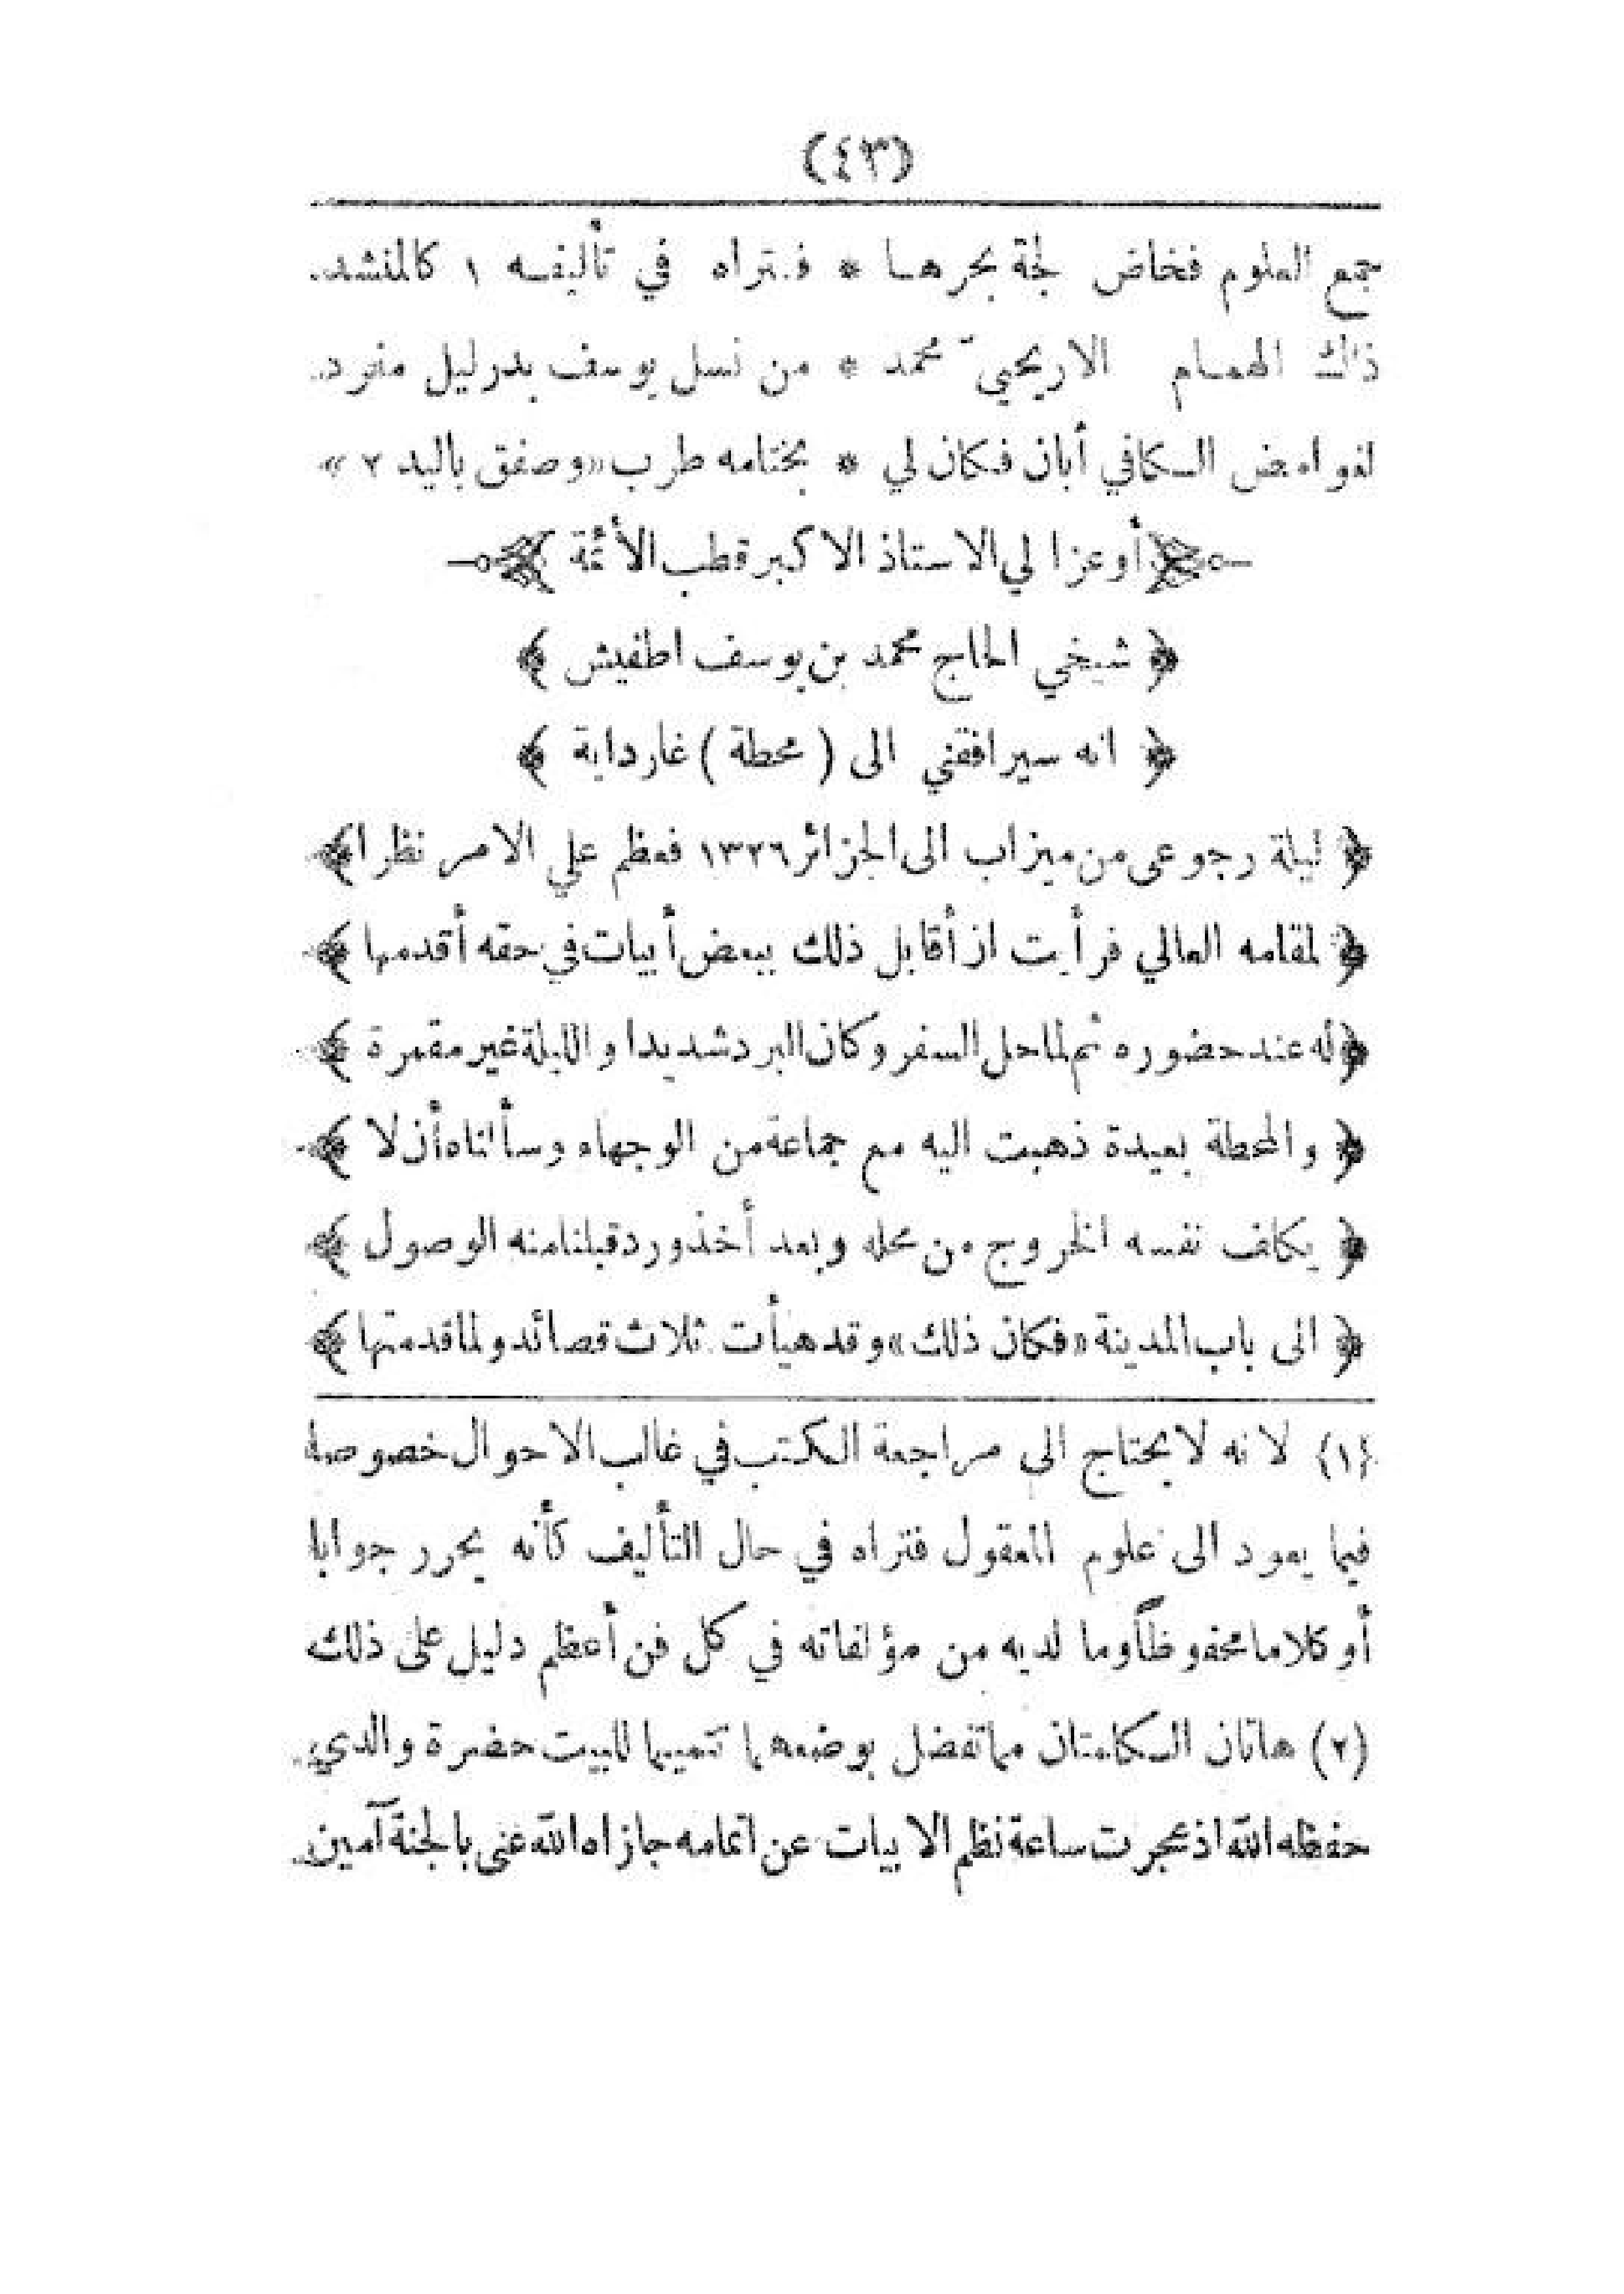 (٤٣)
جمع العلوم فخاض لجة بحرها * فتراه في تأليفه ١ كالمنشد
ذاك الهمام الاريحيّ محمد * من نسل يوسف بدر ليل مفرد
لغوامض الكافي أبان فكان لي * بختامه طرب «وصفق باليد ٢»
أوعز الي الاستاذ الاكبر قطب الأئمة
﴿ شيخي الحاج محمد بن يوسف اطفيش ﴾
﴿ انه سيرافقني الى ( محطة ) غارداية ﴾
﴿ ليلة رجوعى من ميزاب الى الجزائر ١٣٢٦ فعظم علي الامر نظرا ﴾
﴿ لمقامه العالي فرأيت ان أقابل ذلك ببعض أبيات في حقه أقدمها ﴾
﴿ له عند حضوره ثم لما حل السفر وكان البرد شديدا والليلة غير مقمرة ﴾
﴿ والمحطة بعيدة ذهبت اليه مع جماعة من الوجهاء وسألناه أن لا ﴾
﴿ يكلف نفسه الخروج من محله وبعد أخذ ورد قبلنا منه الوصول ﴾
﴿ الى باب المدينة «فكان ذلك» وقد هيأت ثلاث قصائد ولما قدمتها ﴾
(١) لانه لا يحتاج الى مراجعة الكتب في غالب الاحوال خصوصا
فيما يعود الى علوم المعقول فتراه في حال التأليف كأنه يحرر جوابا
أو كلاما محفوظاً وما لديه من مؤلفاته في كل فن أعظم دليل على ذلك
(٢) هاتان الكلمتان مما تفضل بوضعهما تتميما للبيت حضرة والدي
حفظه الله اذ عجرت ساعة نظم الابيات عن اتمامه جازاه الله عنى بالجنة آمين